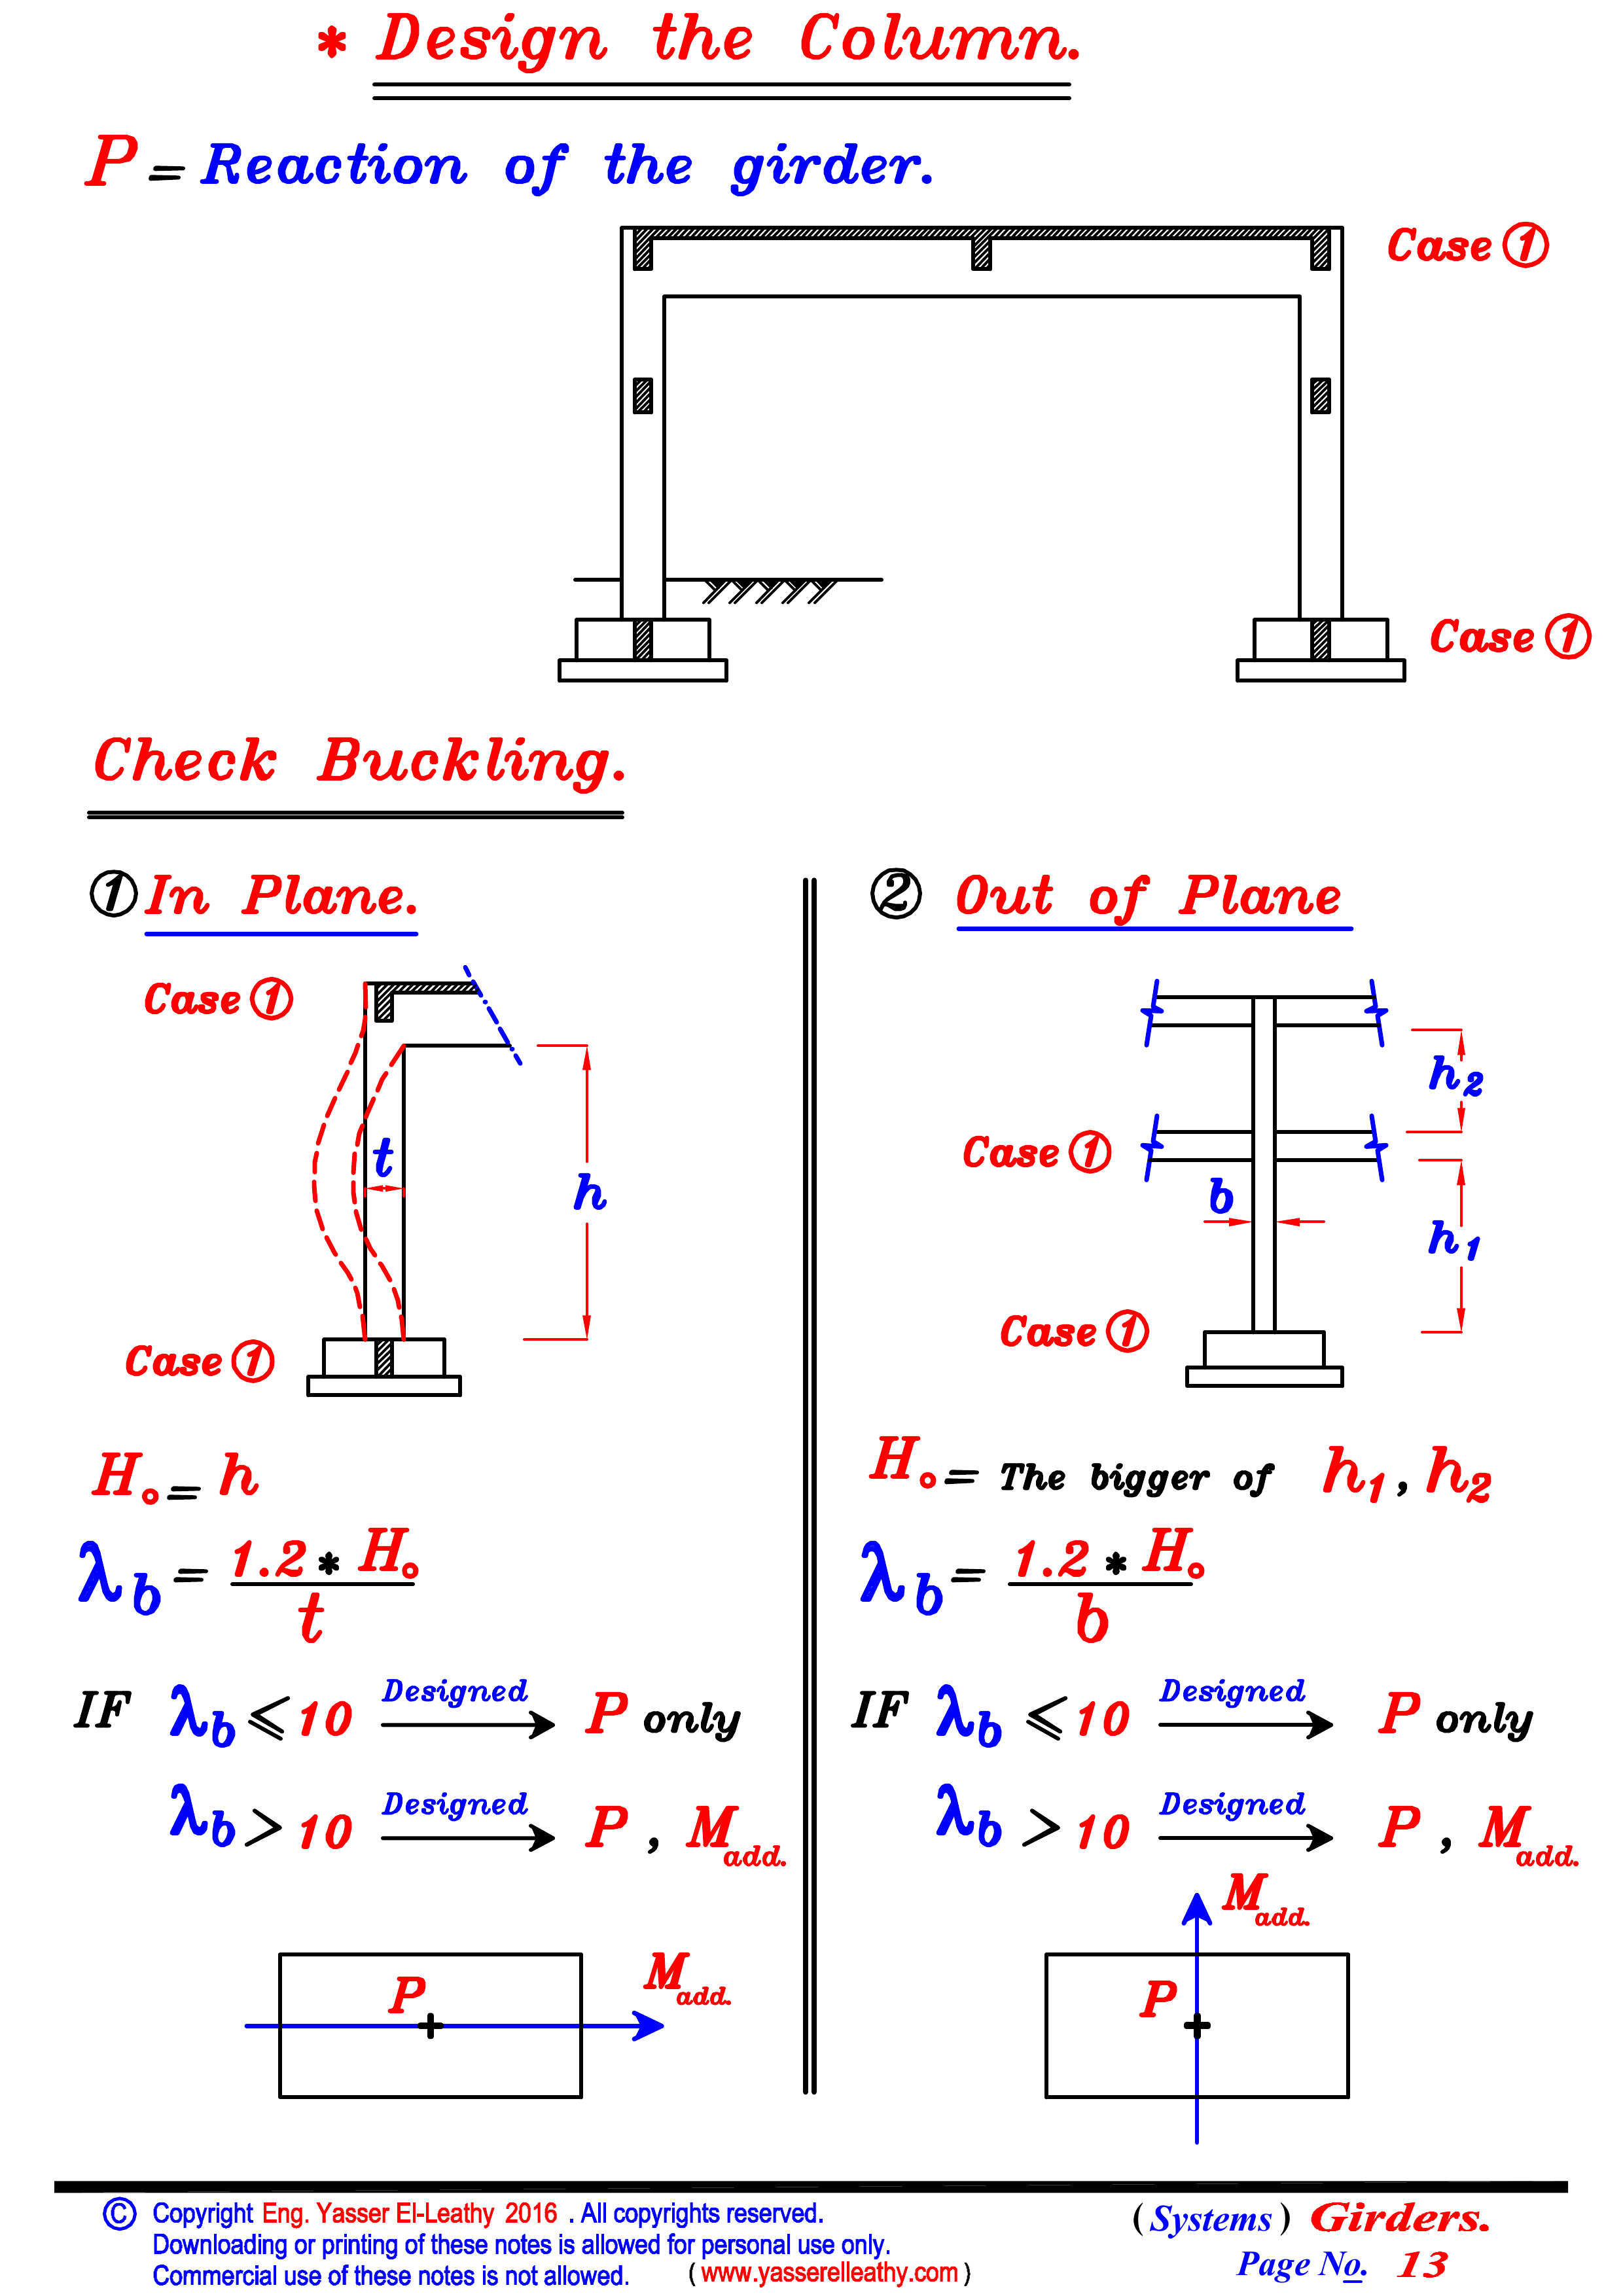 * Design the Column.
P = Reaction of the girder.
Case ①
Case ①
Check Buckling.
① In Plane.
Case ①
t
h
Case ①
H₀ = h
λb = 1.2 * H₀ / t
IF λb ⩽ 10 Designed P only
λb > 10 Designed P , Madd.
P
Madd.
② Out of Plane
h2
Case ①
b
h1
Case ①
H₀ = The bigger of h1 , h2
λb = 1.2 * H₀ / b
IF λb ⩽ 10 Designed P only
λb > 10 Designed P , Madd.
Madd.
P
© Copyright Eng. Yasser El-Leathy 2016 . All copyrights reserved.
Downloading or printing of these notes is allowed for personal use only.
Commercial use of these notes is not allowed. ( www.yasserelleathy.com )
( Systems ) Girders.
Page No. 13